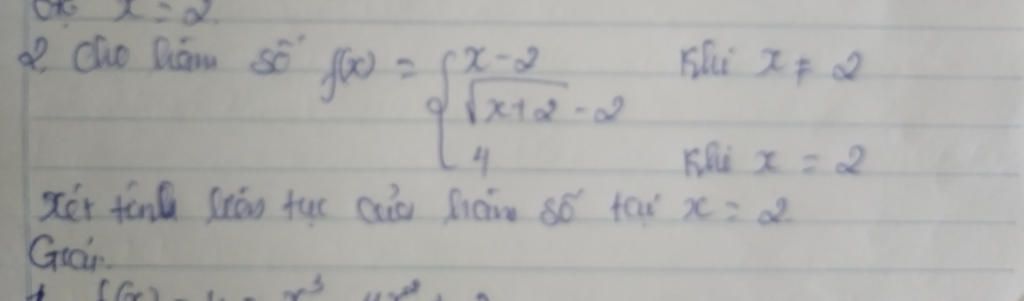 x = 2
2. Cho hàm số f(x) = { x - 2 khi x ≠ 2
√x+2 - 2
4 khi x = 2
Xét tính liên tục của hàm số tại x = 2
Giải.